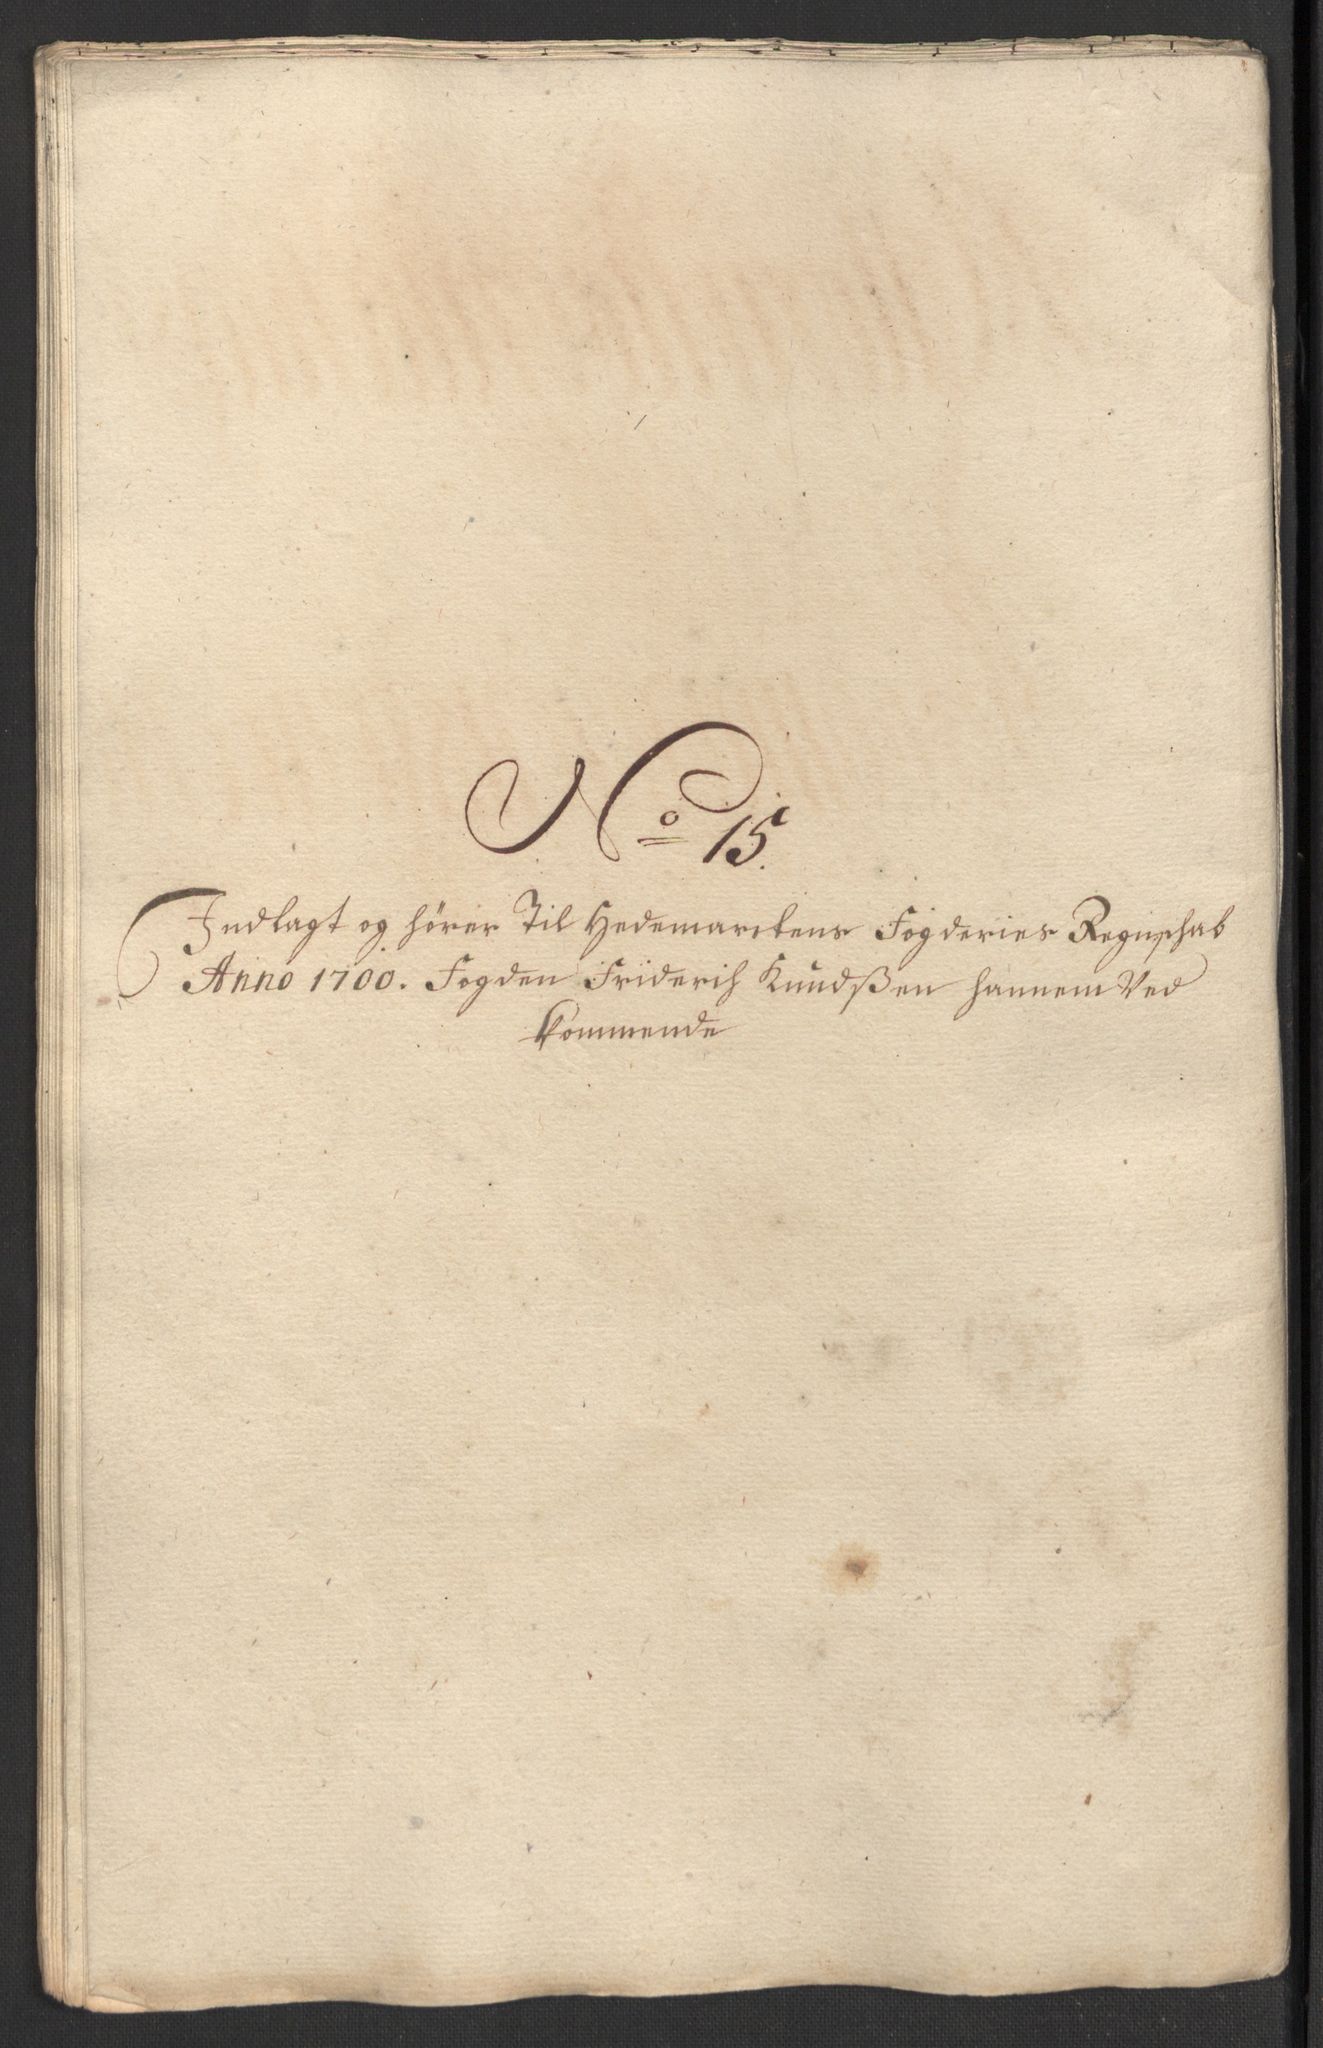 No 15.
Indlagt og hører Til Hedemarckens Fogderies Regnschab
Anno 1700. Fogden Friderich Knudßen hannem Ved
kommende